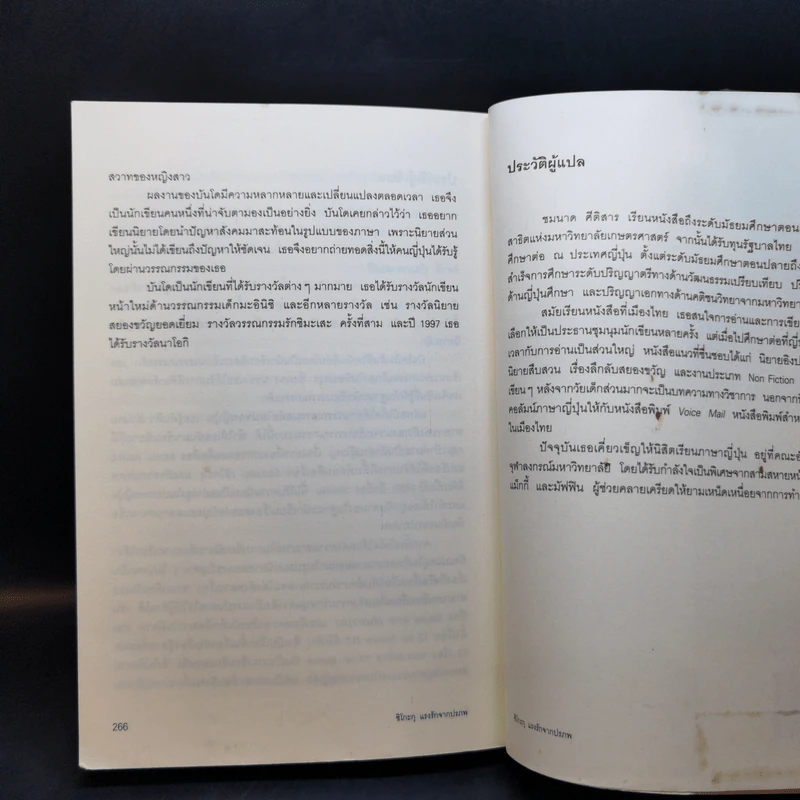 สวาทของหญิงสาว
ผลงานของบันโดมีความหลากหลายและเปลี่ยนแปลงตลอดเวลา เธอจึง
เป็นนักเขียนคนหนึ่งที่น่าจับตามองเป็นอย่างยิ่ง บันโดเคยกล่าวไว้ว่า เธออยาก
เขียนนิยายโดยนำปัญหาสังคมมาสะท้อนในรูปแบบของภาษา เพราะนิยายส่วน
ใหญ่นั้นไม่ได้เขียนถึงปัญหาให้ชัดเจน เธอจึงอยากถ่ายทอดสิ่งนี้ให้คนญี่ปุ่นได้รับรู้
โดยผ่านวรรณกรรมของเธอ
บันโดเป็นนักเขียนที่ได้รับรางวัลต่างๆ มากมาย เธอได้รับรางวัลนักเขียน
หน้าใหม่ด้านวรรณกรรมเด็กมะอินิชิ และอีกหลายรางวัล เช่น รางวัลนิยาย
สยองขวัญยอดเยี่ยม รางวัลวรรณกรรมรักชิมะเสะ ครั้งที่สาม และปี 1997 เธอ
ได้รับรางวัลนาโอกิ
266
ชิโกะกุ แรงรักจากปรภพ
ประวัติผู้แปล
ชมนาด ศีติสาร เรียนหนังสือถึงระดับมัธยมศึกษาตอน
สาธิตแห่งมหาวิทยาลัยเกษตรศาสตร์ จากนั้นได้รับทุนรัฐบาลไทย
ศึกษาต่อ ณ ประเทศญี่ปุ่น ตั้งแต่ระดับมัธยมศึกษาตอนปลายถึง
สำเร็จการศึกษาระดับปริญญาตรีทางด้านวัฒนธรรมเปรียบเทียบ
ด้านญี่ปุ่นศึกษา และปริญญาเอกทางด้านคติชนวิทยาจากมหาวิทยา
สมัยเรียนหนังสือที่เมืองไทย เธอสนใจการอ่านและการเขีย
เลือกให้เป็นประธานชุมนุมนักเขียนหลายครั้ง แต่เมื่อไปศึกษาต่อที่ญี่
เวลากับการอ่านเป็นส่วนใหญ่ หนังสือแนวที่ชื่นชอบได้แก่ นิยายอิง
นิยายสืบสวน เรื่องลึกลับสยองขวัญ และงานประเภท Non Fiction
เขียนๆ หลังจากวัยเด็กส่วนมากจะเป็นบทความทางวิชาการ นอกจาก
คอลัมน์ภาษาญี่ปุ่นให้กับหนังสือพิมพ์ Voice Mail หนังสือพิมพ์สำห
ในเมืองไทย
ปัจจุบันเธอเคี่ยวเข็ญให้นิสิตเรียนภาษาญี่ปุ่น อยู่ที่คณะอั
จุฬาลงกรณ์มหาวิทยาลัย โดยได้รับกำลังใจเป็นพิเศษจากสามสหาย
แม้กกี้ และมัฟฟิน ผู้ช่วยคลายเครียดให้ยามเหน็ดเหนื่อยจากการทำ
ชิโกะกุ แรงรักจากปรภพ